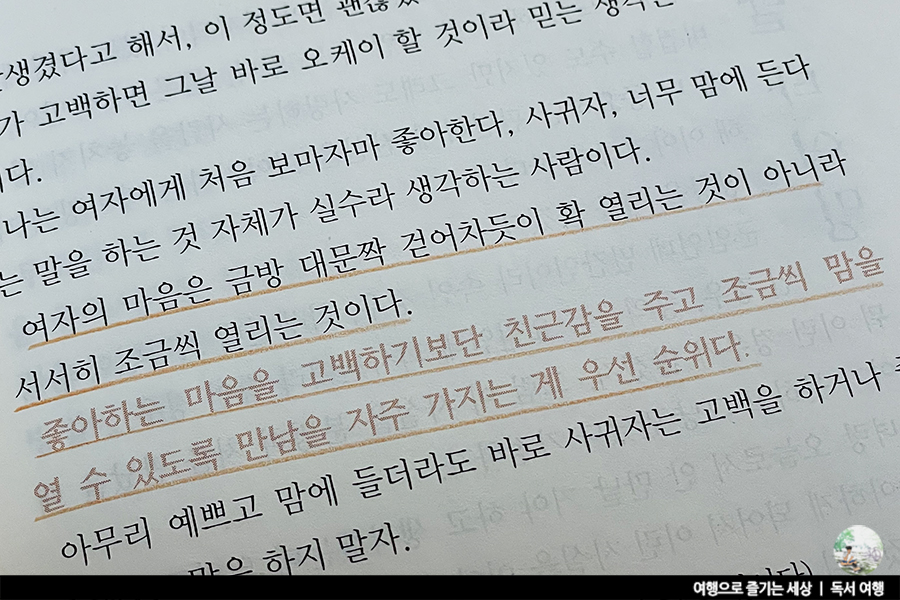 생겼다고 해서, 이 정도면
가 고백하면 그날 바로 오케이 할 것이라 믿는 생각은
다.
나는 여자에게 처음 보마자마 좋아한다, 사귀자, 너무 맘에 든다
는 말을 하는 것 자체가 실수라 생각하는 사람이다.
여자의 마음은 금방 대문짝 걷어차듯이 확 열리는 것이 아니라
서서히 조금씩 열리는 것이다.
좋아하는 마음을 고백하기보단 친근감을 주고 조금씩 맘을
열 수 있도록 만남을 자주 가지는 게 우선 순위다.
아무리 예쁘고 맘에 들더라도 바로 사귀자는 고백을 하거나
말을 하지 말자.
여행으로 즐기는 세상 | 독서 여행